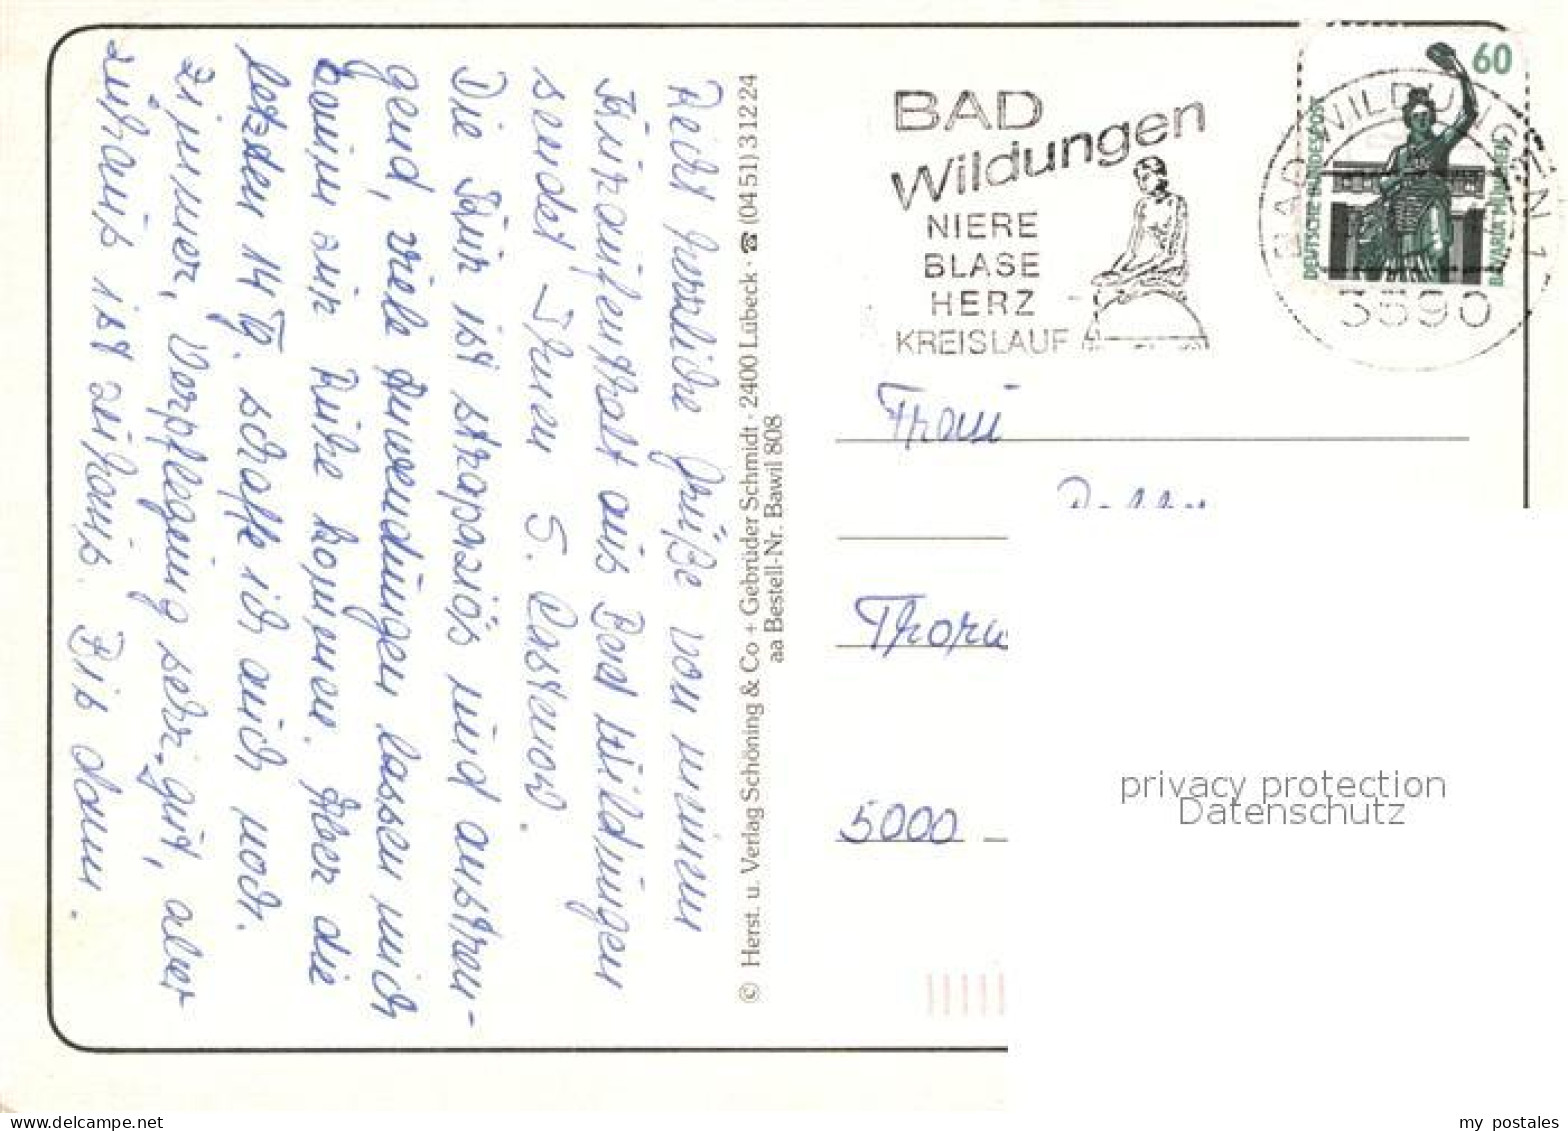 Recht herzliche Grüße von meinem
Kuraufenthalt aus Bad Wildungen
sendet Ihnen S.
Die Kur ist strapaziös und anstren-
gend, viele Anwendungen lassen mich
kaum zur Ruhe kommen. Aber die
letzten 14 Tg. schaffe ich auch noch.
Zimmer, Verpflegung sehr gut, aber
zuhaus ist zuhaus. Bis dann.
© Herst. u. Verlag Schöning & Co + Gebrüder Schmidt · 2400 Lübeck · ☎ (04 51) 3 12 24
aa Bestell-Nr. Bawil 808
BAD
Wildungen
NIERE
BLASE
HERZ
KREISLAUF
BAD WILDUNGEN 1
3590
60
DEUTSCHE BUNDESPOST
BAVARIA MÜNCHEN
Frau
5000
privacy protection
Datenschutz
my postales